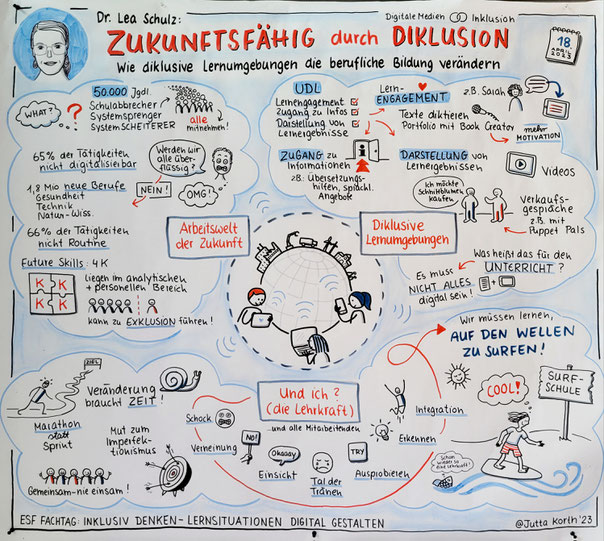 Dr. Lea Schulz:
Digitale Medien Inklusion
ZUKUNFTSFÄHIG durch DIKLUSION
Wie diklusive Lernumgebungen die berufliche Bildung verändern
18.
APRIL
2023
WHAT?
?
50.000 Jgdl.
Schulabbrecher
Systemsprenger
SYSTEMSCHEITERER
alle
mitnehmen!
65% der Tätigkeiten
nicht digitalisierbar
Werden wir
alle über-
flüssig?
NEIN!
OMG!
1,8 Mio neue Berufe
Gesundheit
Technik
Natur-Wiss.
66% der Tätigkeiten
nicht Routine
Future Skills: 4K
K K
K K
liegen im analytischen
+ personellen Bereich
kann zu EXKLUSION führen!
Arbeitswelt
der Zukunft
UDL
Lernengagement
Zugang zu Infos
Darstellung von
Lernergebnissen
Lern-
ENGAGEMENT
z.B. Sarah
Texte diktieren
Portfolio mit Book Creator
mehr
MOTIVATION
ZUGANG zu
Informationen
z.B. Übersetzungs-
hilfen, sprachl.
Angebote
DARSTELLUNG von
Lernergebnissen
Videos
Ich möchte
Schnittblumen
kaufen
Verkaufs-
gespräche
z.B. mit
Puppet Pals
Diklusive
Lernumgebungen
Was heißt das für den
UNTERRICHT?
Es muss
NICHT ALLES
digital sein!
Wir müssen lernen,
AUF DEN WELLEN
ZU SURFEN!
COOL!
SURF-
SCHULE
Schon
wieder so
eine Lehrkraft!
ZIEL
Veränderung
braucht ZEIT!
Marathon
statt
Sprint
Mut zum
Imperfek-
tionismus
Gemeinsam-nie einsam!
Und ich?
(die Lehrkraft)
...und alle Mitarbeitenden
Schock
Verneinung
NO!
Okaaay
Einsicht
Tal der
Tränen
TRY
Ausprobieren
Erkennen
Integration
ESF FACHTAG: INKLUSIV DENKEN-LERNSITUATIONEN DIGITAL GESTALTEN
@Jutta Korth '23